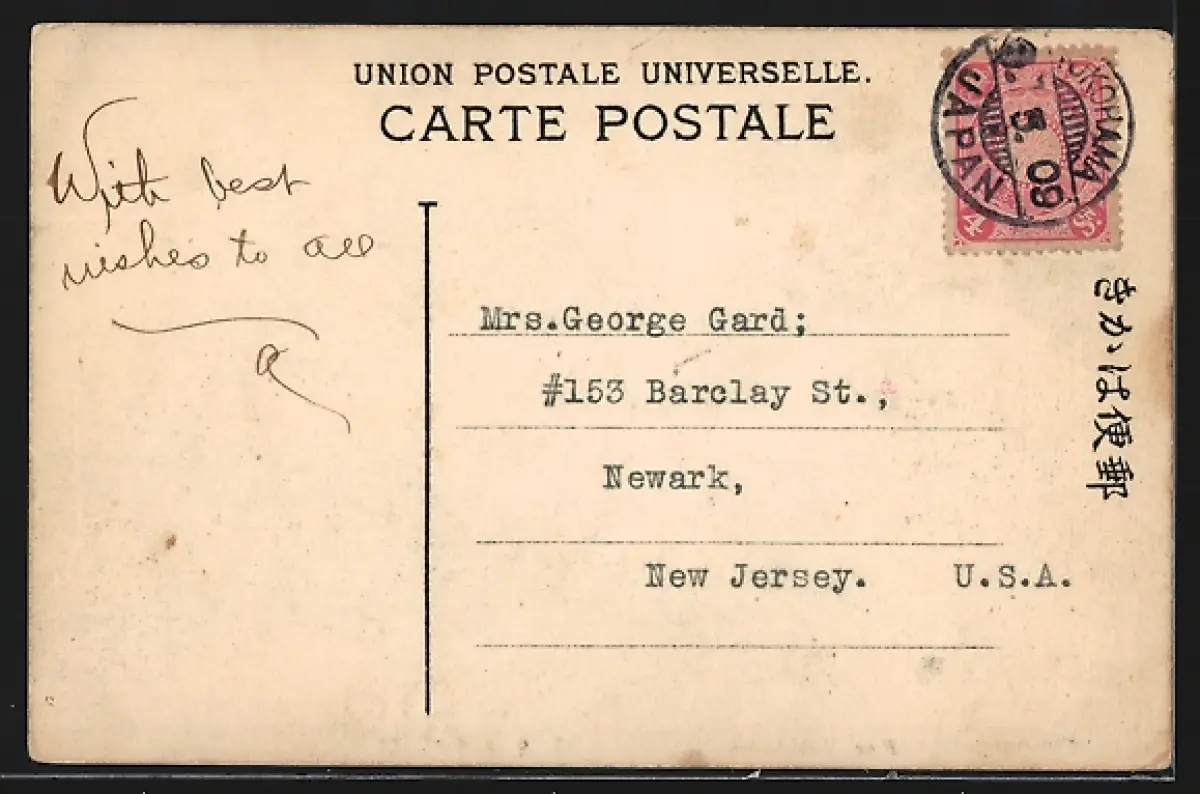 UNION POSTALE UNIVERSELLE.
CARTE POSTALE
With best
wishes to all
YOKOHAMA
5. 09
JAPAN
4 Sn.
Mrs.George Gard;
#153 Barclay St.,
Newark,
New Jersey. U.S.A.
きかは便郵